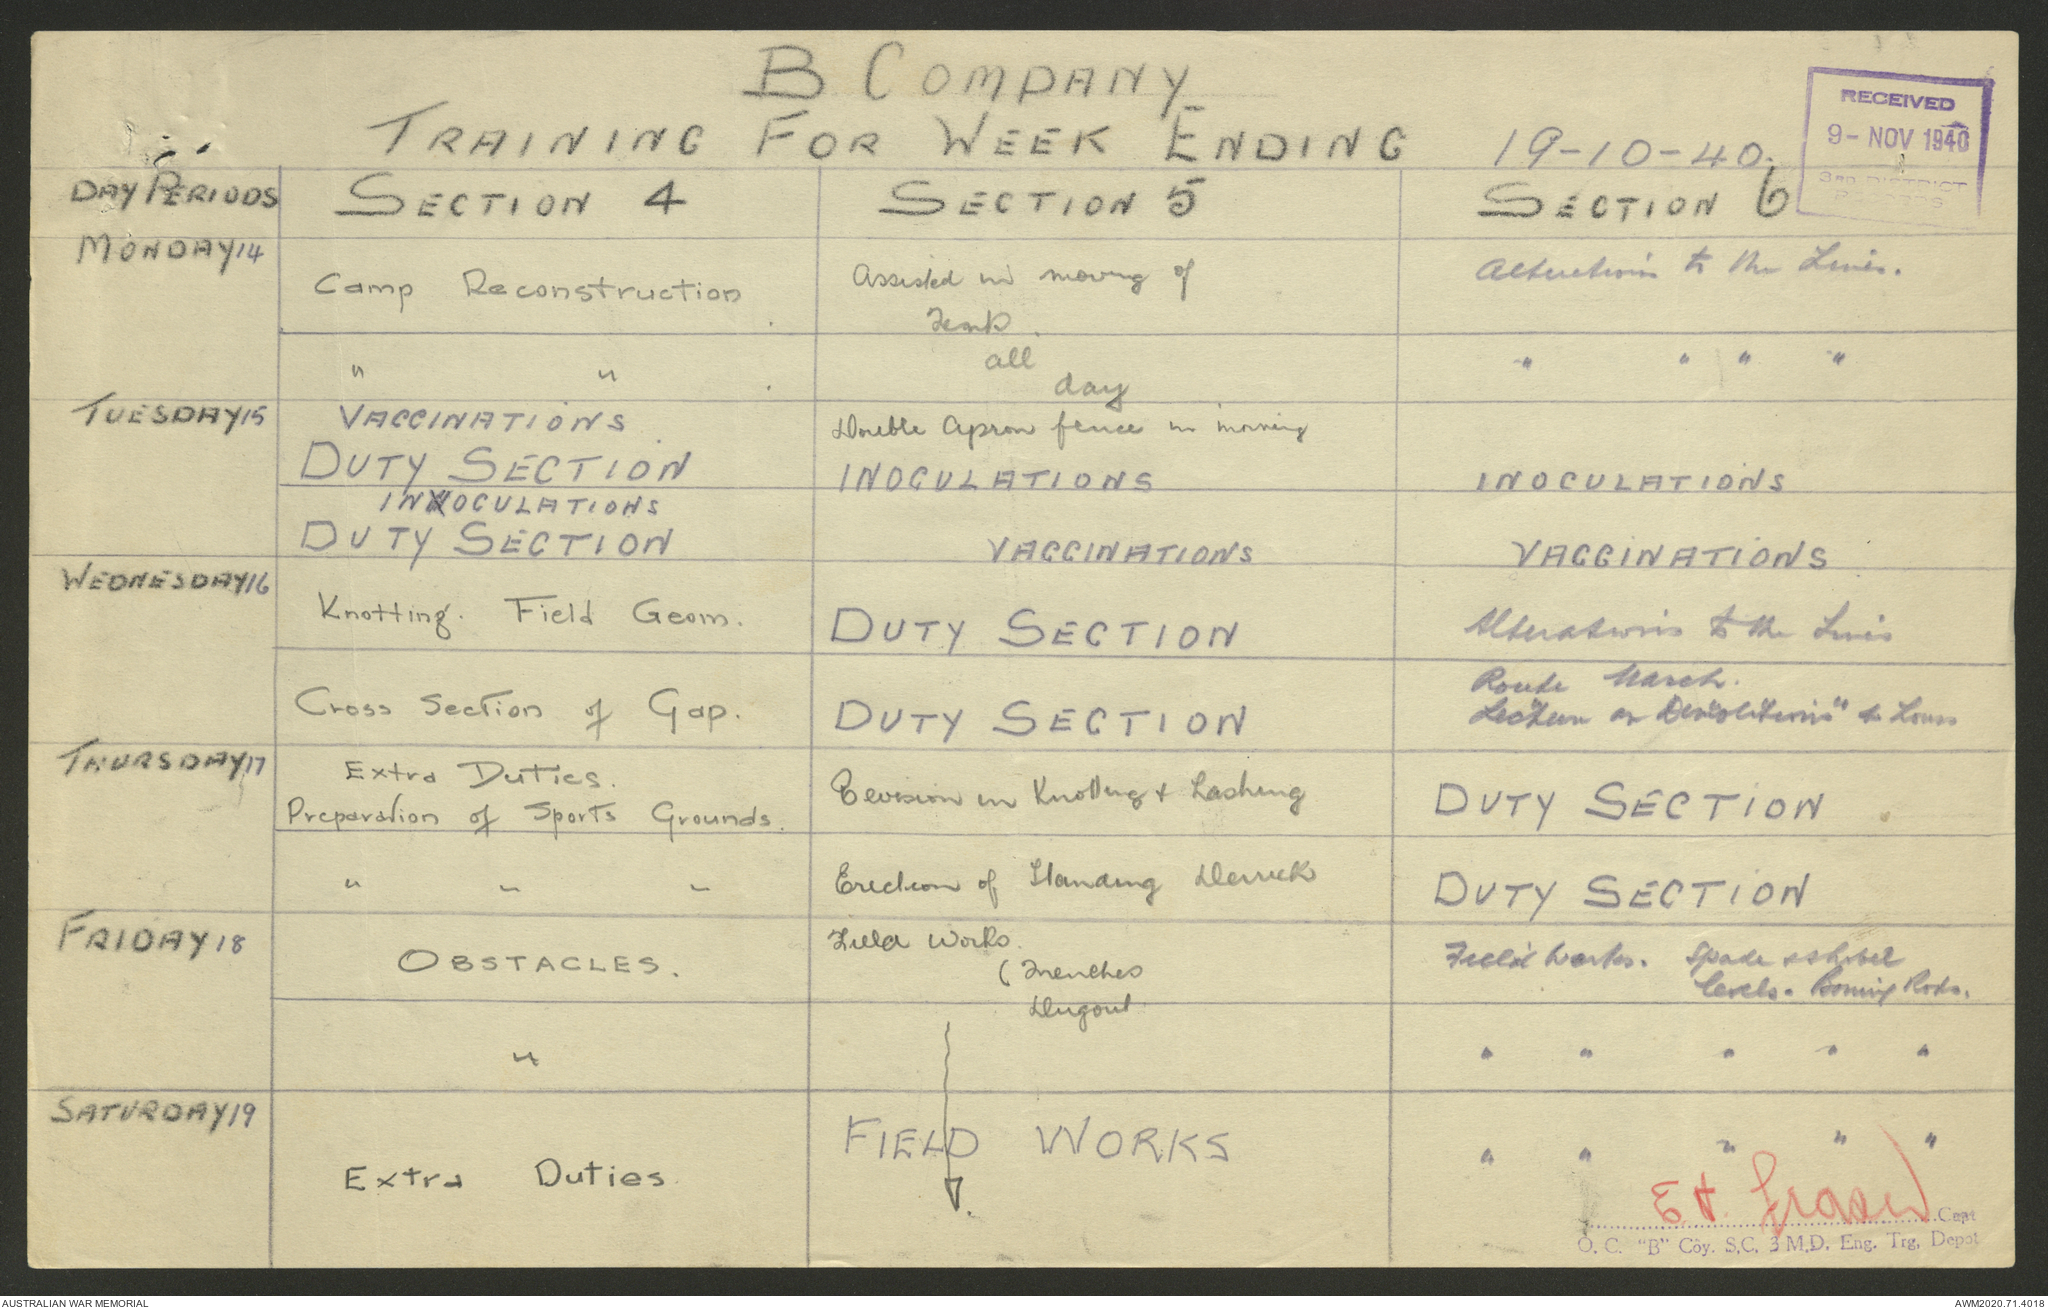 B COMPANY
TRAINING FOR WEEK ENDING 19-10-40.
RECEIVED
9- NOV 1940
3RD DISTRICT
DAY PERIODS SECTION 4 SECTION 5 SECTION 6
MONDAY 14
Camp Reconstruction
Assisted in moving of
Alterations to the Lines.
" "
all
day
" " " "
TUESDAY 15
VACCINATIONS
DUTY SECTION
Double Apron fence in morning
INOCULATIONS
INOCULATIONS
INOCULATIONS
DUTY SECTION
VACCINATIONS
VACCINATIONS
WEDNESDAY 16
Knotting. Field Geom.
DUTY SECTION
Alterations to the Lines
Cross Section of Gap.
DUTY SECTION
Route March.
Lecture on "Demolitions"
THURSDAY 17
Extra Duties.
Preparation of Sports Grounds.
Revision in Knotting & Lashing
DUTY SECTION
" " "
Erection of Standing Derrick
DUTY SECTION
FRIDAY 18
OBSTACLES.
Field Works.
(Trenches
Dugout
Field Works. Spade & shovel
levels. Boning Rods.
"
" " " " "
SATURDAY 19
Extra Duties.
FIELD WORKS
" " " " "
E H Fraser Capt
O. C. "B" Coy. S.C. 3 M.D. Eng. Trg. Depot
AUSTRALIAN WAR MEMORIAL
AWM2020.71.4018